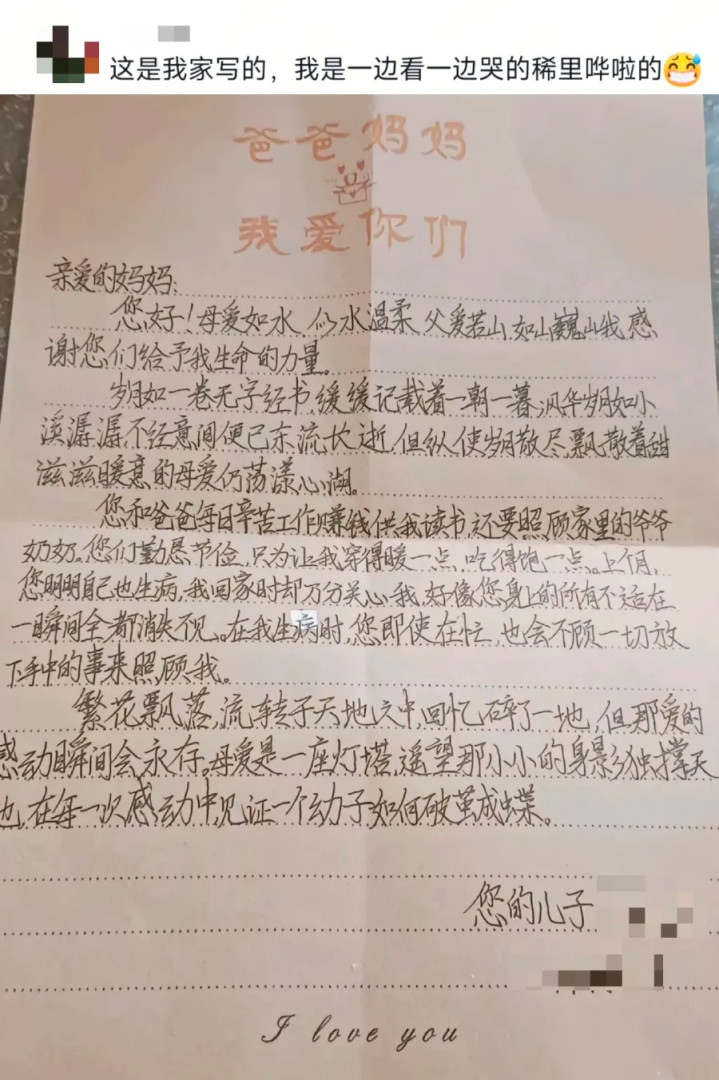 这是我家写的，我是一边看一边哭的稀里哗啦的😅
爸爸妈妈
我爱你们
亲爱的妈妈：
您好！母爱如水，似水温柔 父爱若山 如山巍山我感
谢您们给予我生命的力量。
岁月如一卷无字经书，缓缓记载着一朝一暮，风华岁月如小
溪潺潺不经意间便已东流长逝，但纵使岁月散尽，飘散着甜
滋滋暖意的母爱仍荡漾心湖。
您和爸爸每日辛苦工作赚钱供我读书，还要照顾家里的爷爷
奶奶。您们勤恳节俭，只为让我穿得暖一点，吃得饱一点。上个月，
您明明自己也生病，我回家时却万分关心我，好像您身上的所有不适在
一瞬间全都消失不见。在我生病时，您即使在忙，也会不顾一切放
下手中的事来照顾我。
繁花飘落，流转于天地之中，回忆碎了一地，但那爱的
感动瞬间会永存。母爱是一座灯塔，遥望那小小的身影独撑天
地，在每一次感动中，见证一个幼子如何破茧成蝶。
您的儿子
I love you